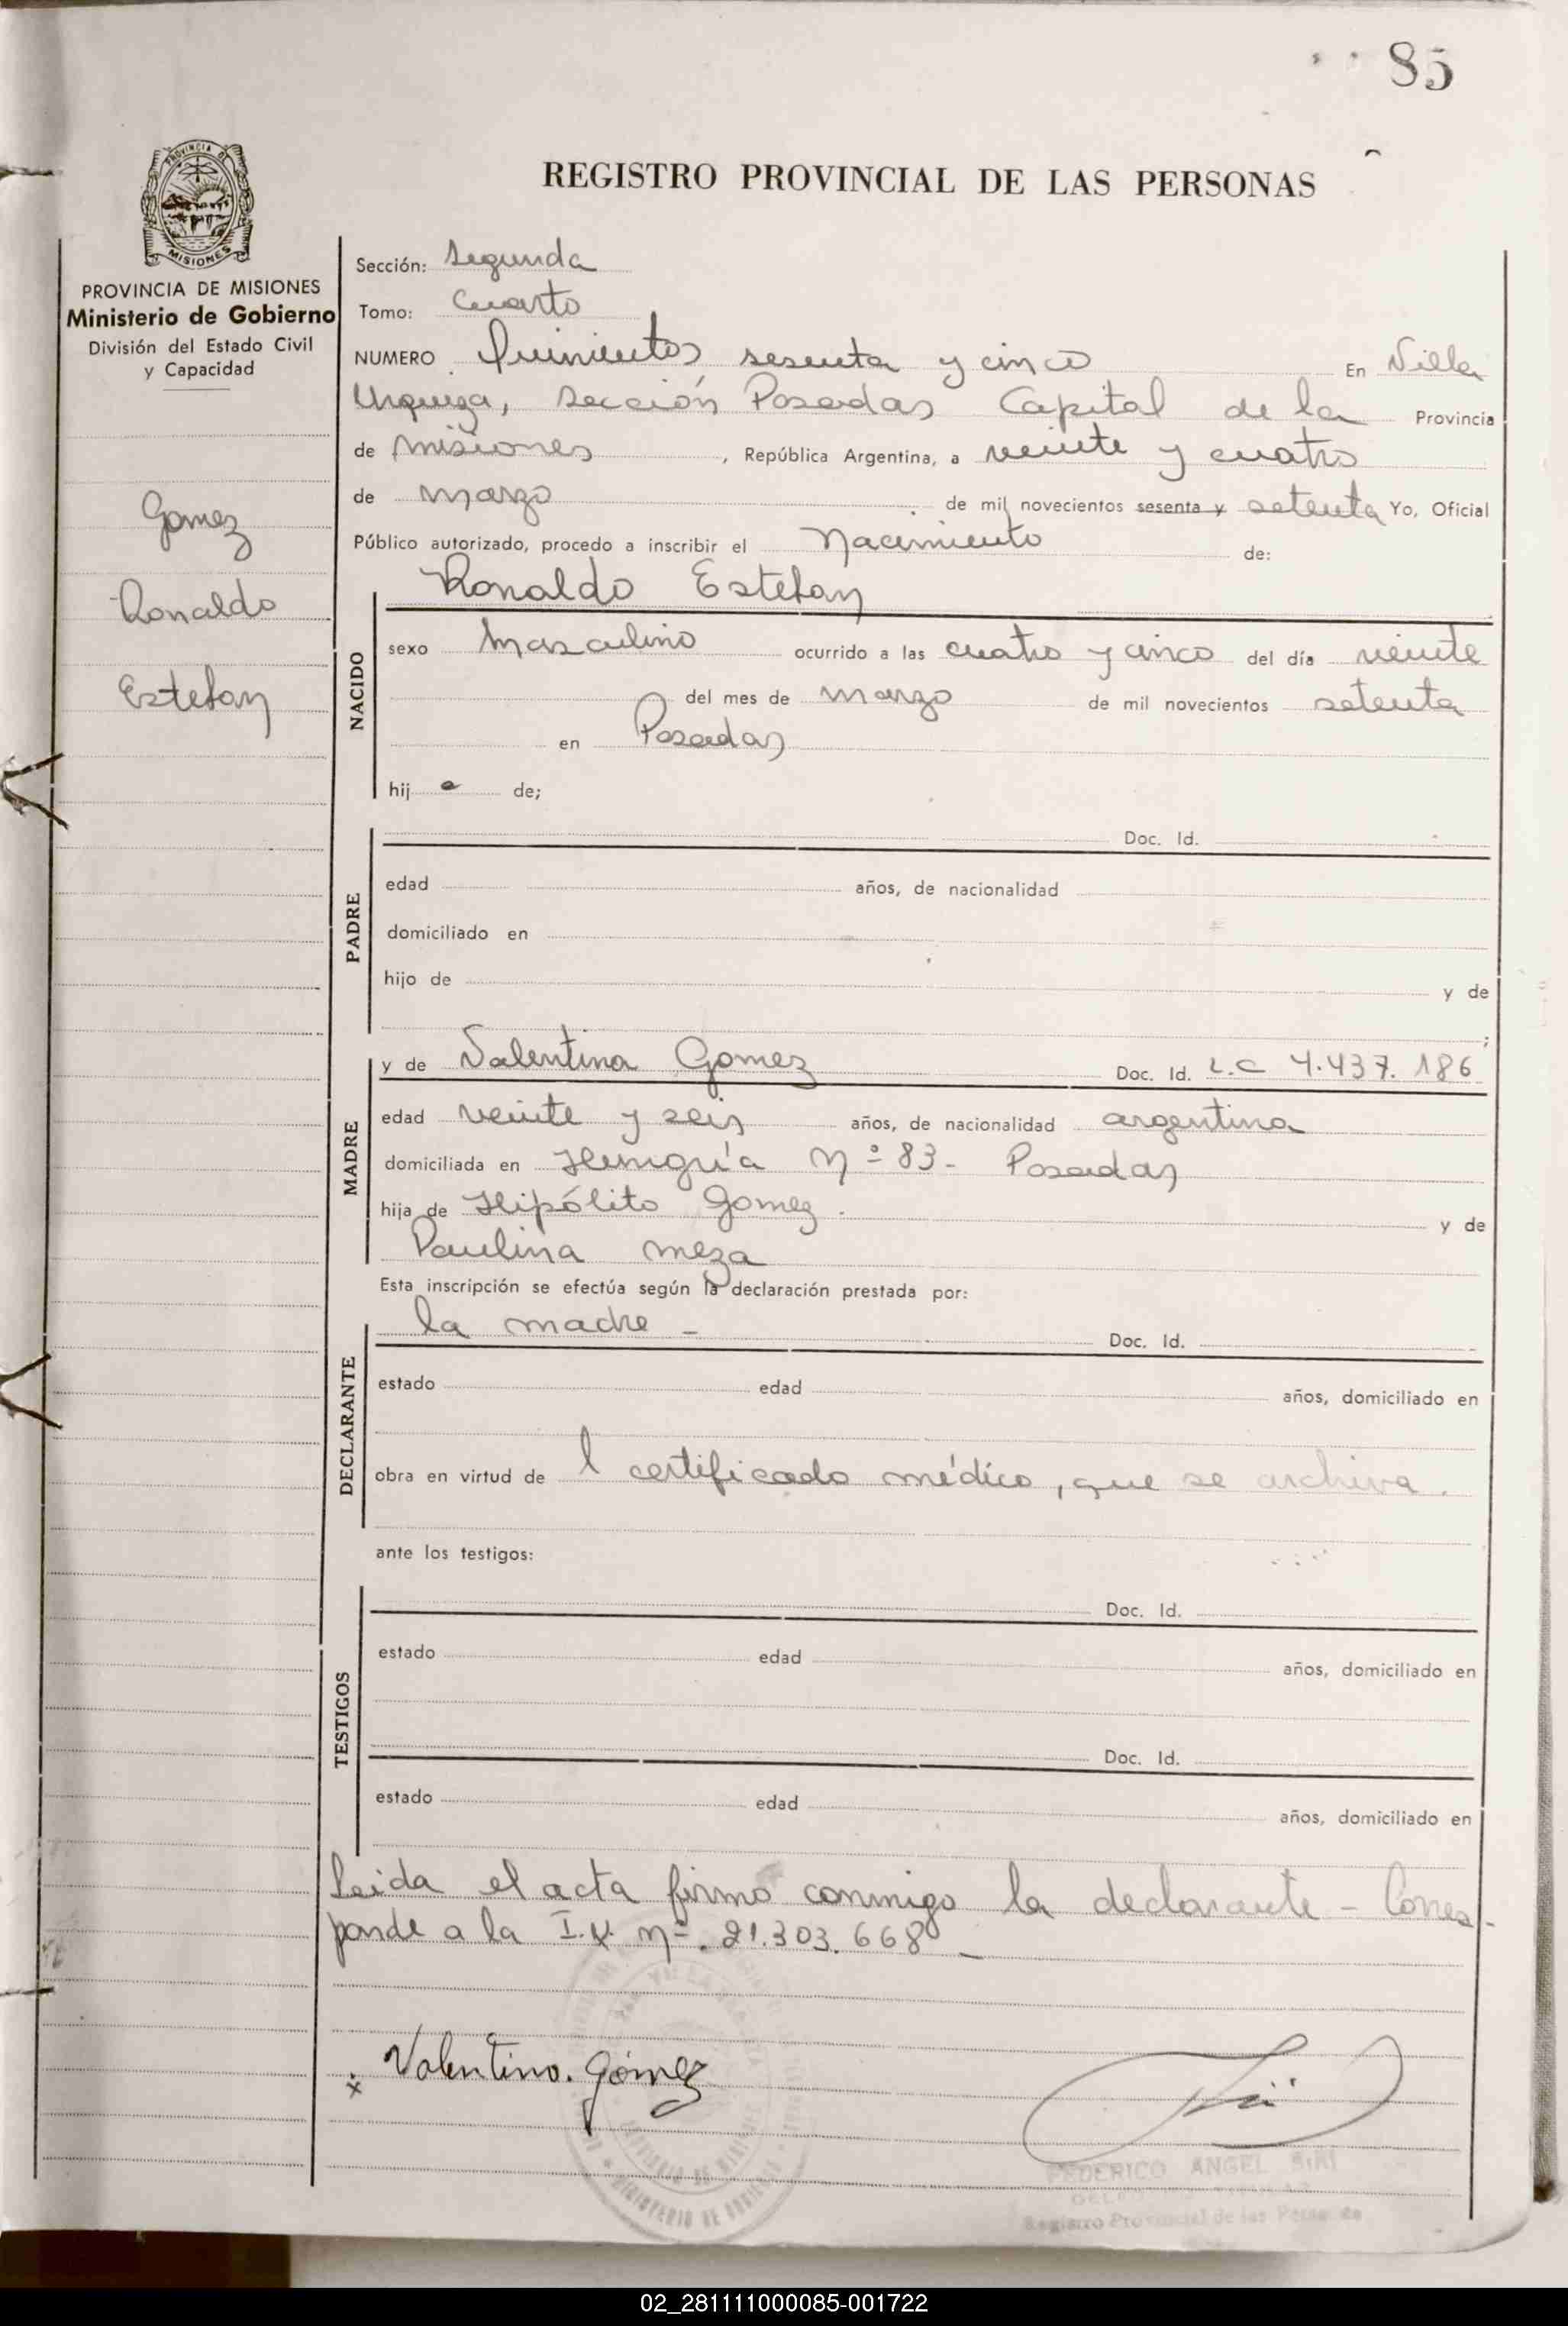 85
PROVINCIA DE
MISIONES
REGISTRO PROVINCIAL DE LAS PERSONAS
PROVINCIA DE MISIONES
Ministerio de Gobierno
División del Estado Civil
y Capacidad
Gomez
Ronaldo
Estefan
Sección: Segunda
Tomo: Cuarto
NUMERO Quinientos sesenta y cinco En Villa
Urquiza, Sección Posadas Capital de la Provincia
de Misiones, República Argentina, a veinte y cuatro
de marzo de mil novecientos sesenta y setenta Yo, Oficial
Público autorizado, procedo a inscribir el Nacimiento de:
Ronaldo Estefan
NACIDO
sexo Masculino ocurrido a las cuatro y cinco del día veinte
del mes de marzo de mil novecientos setenta
en Posadas
hijo de;
PADRE
Doc. Id.
edad años, de nacionalidad
domiciliado en
hijo de y de
;
MADRE
y de Valentina Gomez Doc. Id. L.C 4.437.186
edad veinte y seis años, de nacionalidad argentina
domiciliada en Hungría Nº 83- Posadas
hija de Hipólito Gomez. y de
Paulina meza
Esta inscripción se efectúa según la declaración prestada por:
DECLARANTE
la madre - Doc. Id.
estado edad años, domiciliado en
obra en virtud de l certificado médico, que se archiva.
ante los testigos:
TESTIGOS
Doc. Id.
estado edad años, domiciliado en
Doc. Id.
estado edad años, domiciliado en
Leida el acta firmo conmigo la declarante - Corres-
ponde a la Nº. 21.303.668 -
x Valentina. Gómez
FEDERICO ANGEL SIRI
Registro Provincial de las Personas
02_281111000085-001722